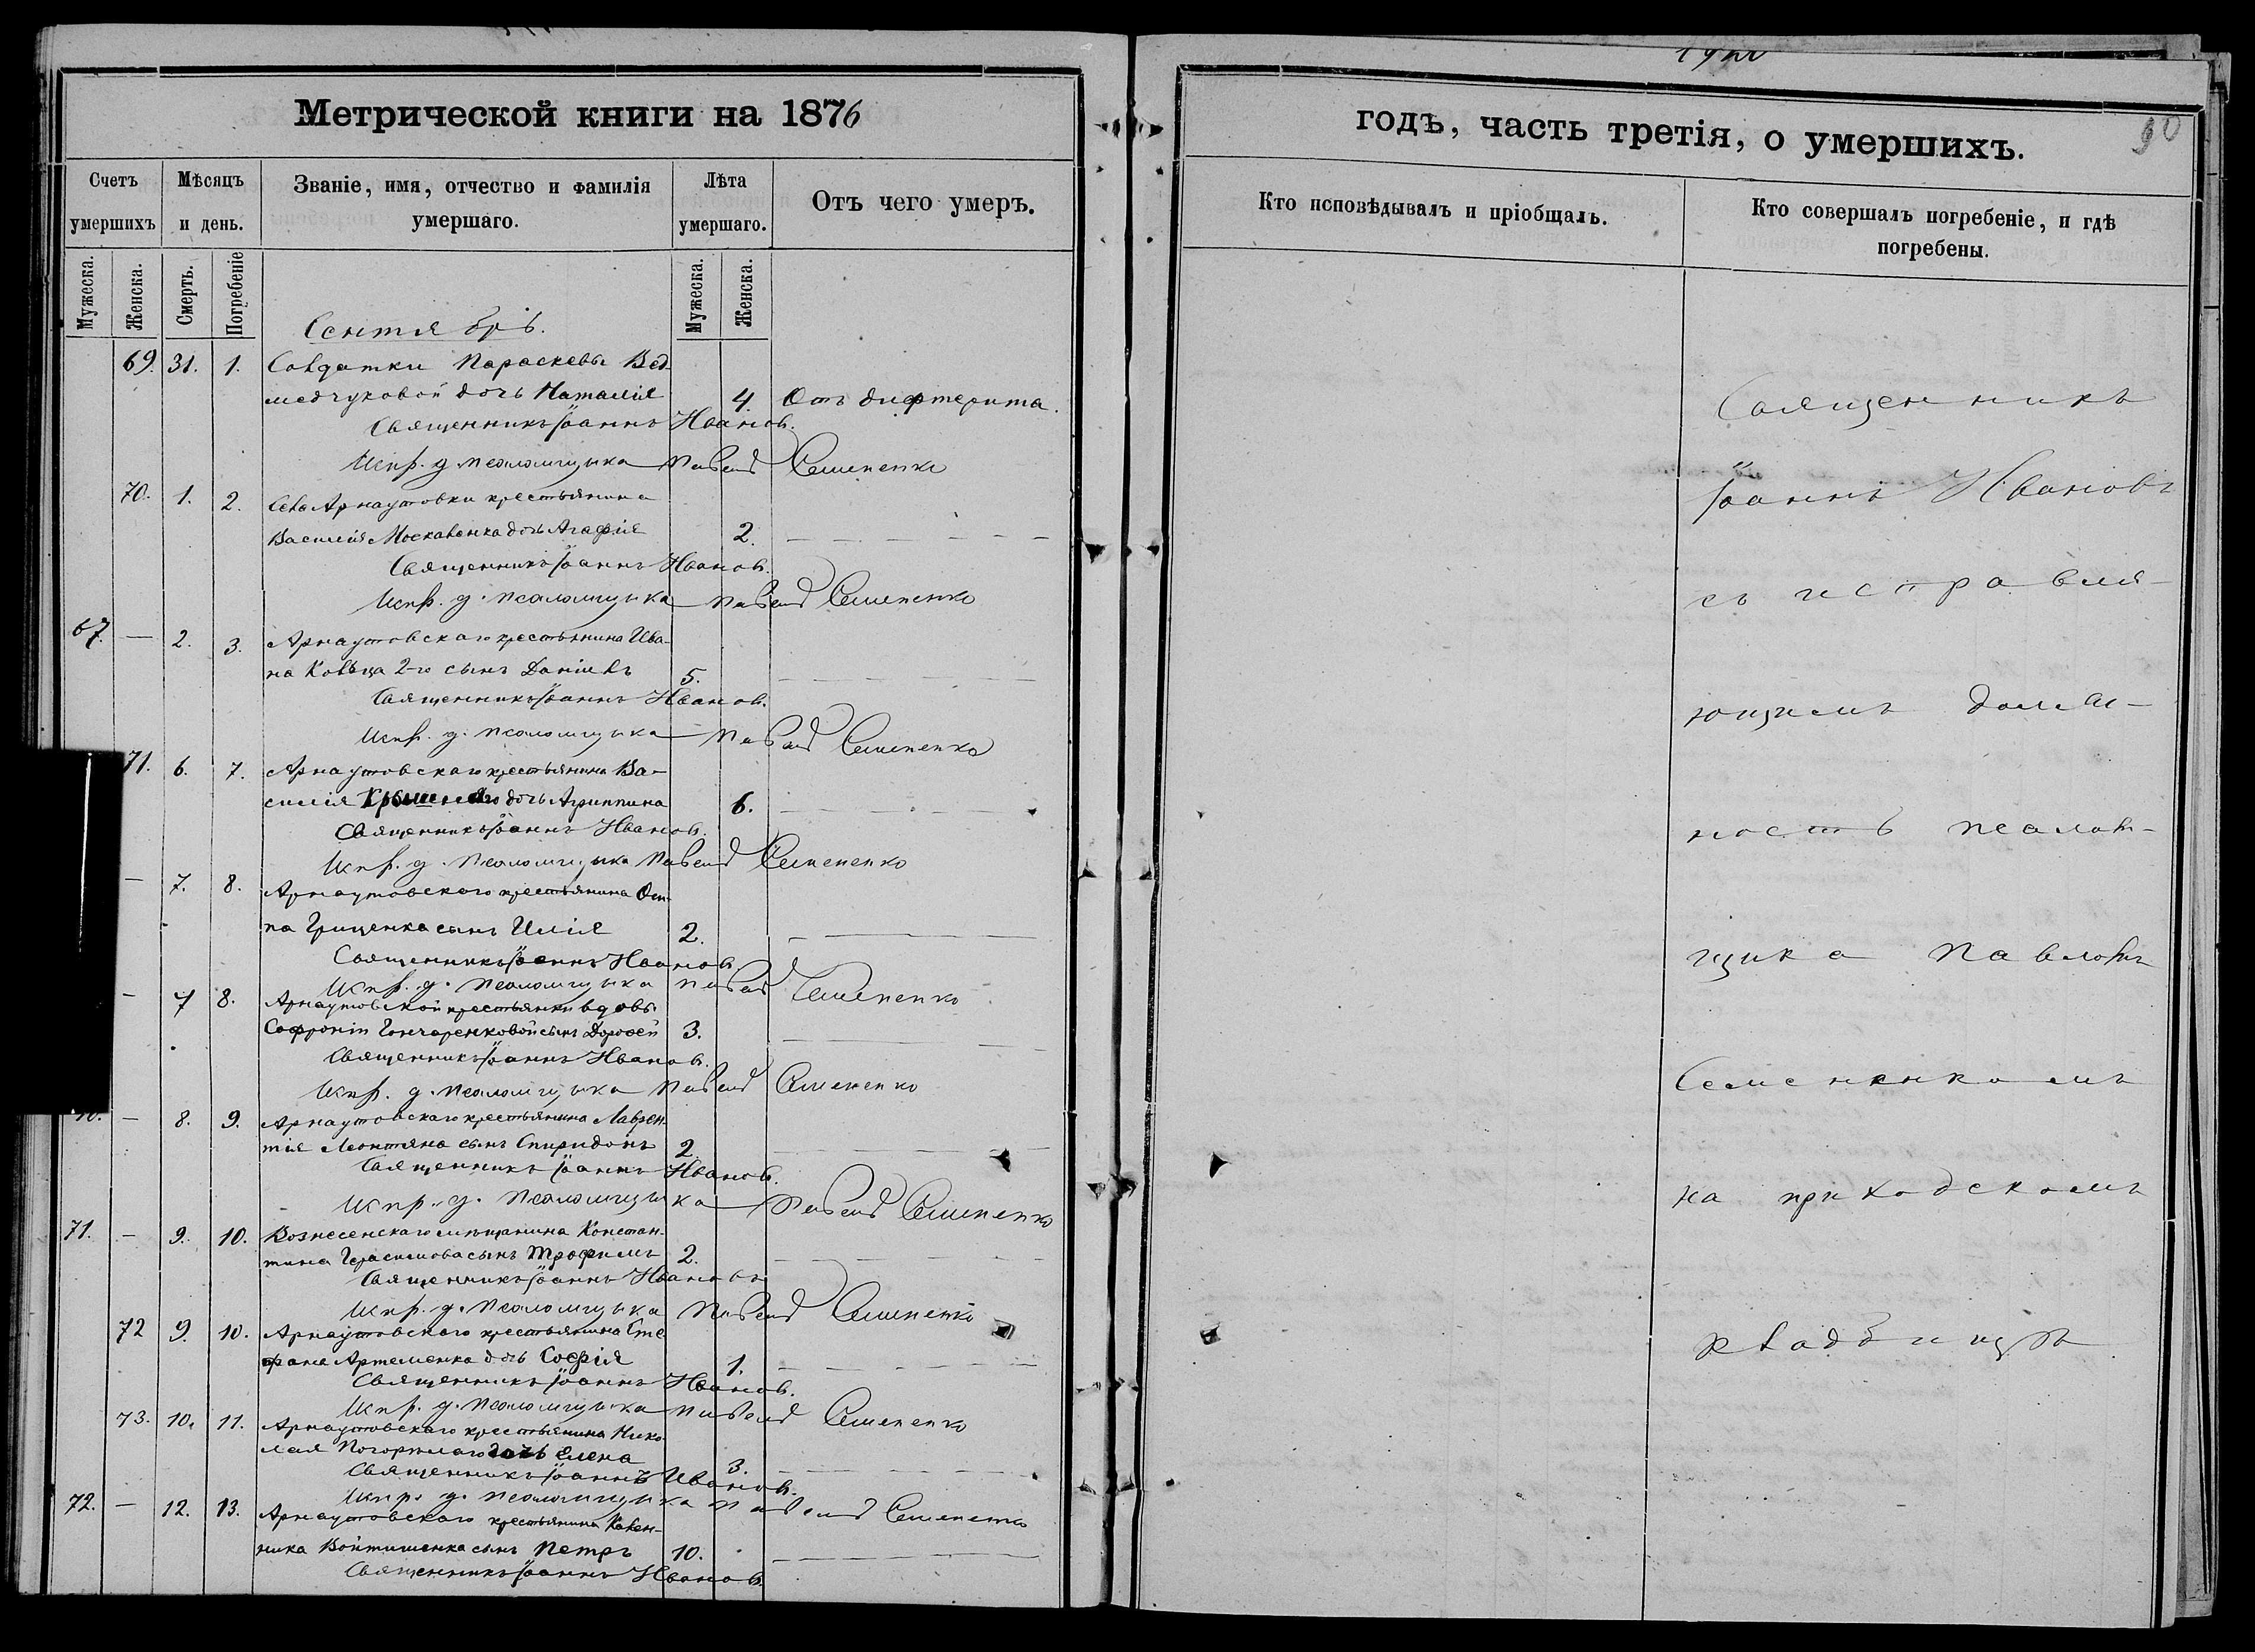 Метрической книги на 1876
Счетъ умершихъ
Мѣсяцъ и день.
Званіе, имя, отчество и фамилія умершаго.
Лѣта умершаго.
Отъ чего умеръ.
Мужеска.
Женска.
Смерть.
Погребеніе
Мужеска.
Женска.
Сентябрь.
69. 31. 1. Солдатки Параскевы Вед-
медчуковой дочь Наталія 4. Отъ дифтерита.
Священникъ Іоаннъ Иванов.
Испр. д. псаломщика Павелъ Семененко
70. 1. 2. Села Арнаутовки крестьянина
Василія Москаленка дочь Агафія 2.
Священникъ Іоаннъ Иванов.
Испр. д. псаломщика Павелъ Семененко
67. — 2. 3. Арнаутовскаго крестьянина Ива-
на Кольца 2-го сынъ Даніилъ 5.
Священникъ Іоаннъ Иванов.
Испр. д. псаломщика Павелъ Семененко
71. 6. 7. Арнаутовскаго крестьянина Ва-
силія дочь Агриппина 6.
Священникъ Іоаннъ Иванов.
Испр. д. псаломщика Павелъ Семененко
— 7. 8. Арнаутовскаго крестьянина Оси-
па Гриценка сынъ Илія 2.
Священникъ Іоаннъ Иванов.
Испр. д. псаломщика Павелъ Семененко
— 7 8. Арнаутовской крестьянки вдовы
Софроніи Гончаренковой сынъ Дорофей 3.
Священникъ Іоаннъ Иванов.
Испр. д. псаломщика Павелъ Семененко
70. — 8. 9. Арнаутовскаго крестьянина Лаврен-
тія Леонтяна сынъ Спиридонъ 2.
Священникъ Іоаннъ Иванов.
Испр. д. псаломщика Павелъ Семененко
71. — 9. 10. Вознесенскаго мѣщанина Констан-
тина Герасимова сынъ Трофимъ 2.
Священникъ Іоаннъ Ивановъ
Испр. д. псаломщика Павелъ Семененко
72 9. 10. Арнаутовскаго крестьянина Сте
фана Артеменка дочь Софія 1.
Священникъ Іоаннъ Иванов.
Испр. д. псаломщика Павелъ Семененко
73. 10. 11. Арнаутовскаго крестьянина Нико-
лая Погорѣлаго дочь Елена 3.
Священникъ Іоаннъ Иванов.
Испр. д. псаломщика Павелъ Семененко
72. — 12. 13. Арнаутовскаго крестьянина Кален-
ника Войтишенка сынъ Петръ 10.
Священникъ Іоаннъ Иванов.
годъ, часть третія, о умершихъ.
90
Кто исповѣдывалъ и пріобщалъ.
Кто совершалъ погребеніе, и гдѣ погребены.
Священникъ
Іоаннъ Ивановъ
съ исправля-
ющимъ долж-
ность псалом-
щика Павломъ
Семененкомъ
на приходскомъ
кладбищѣ